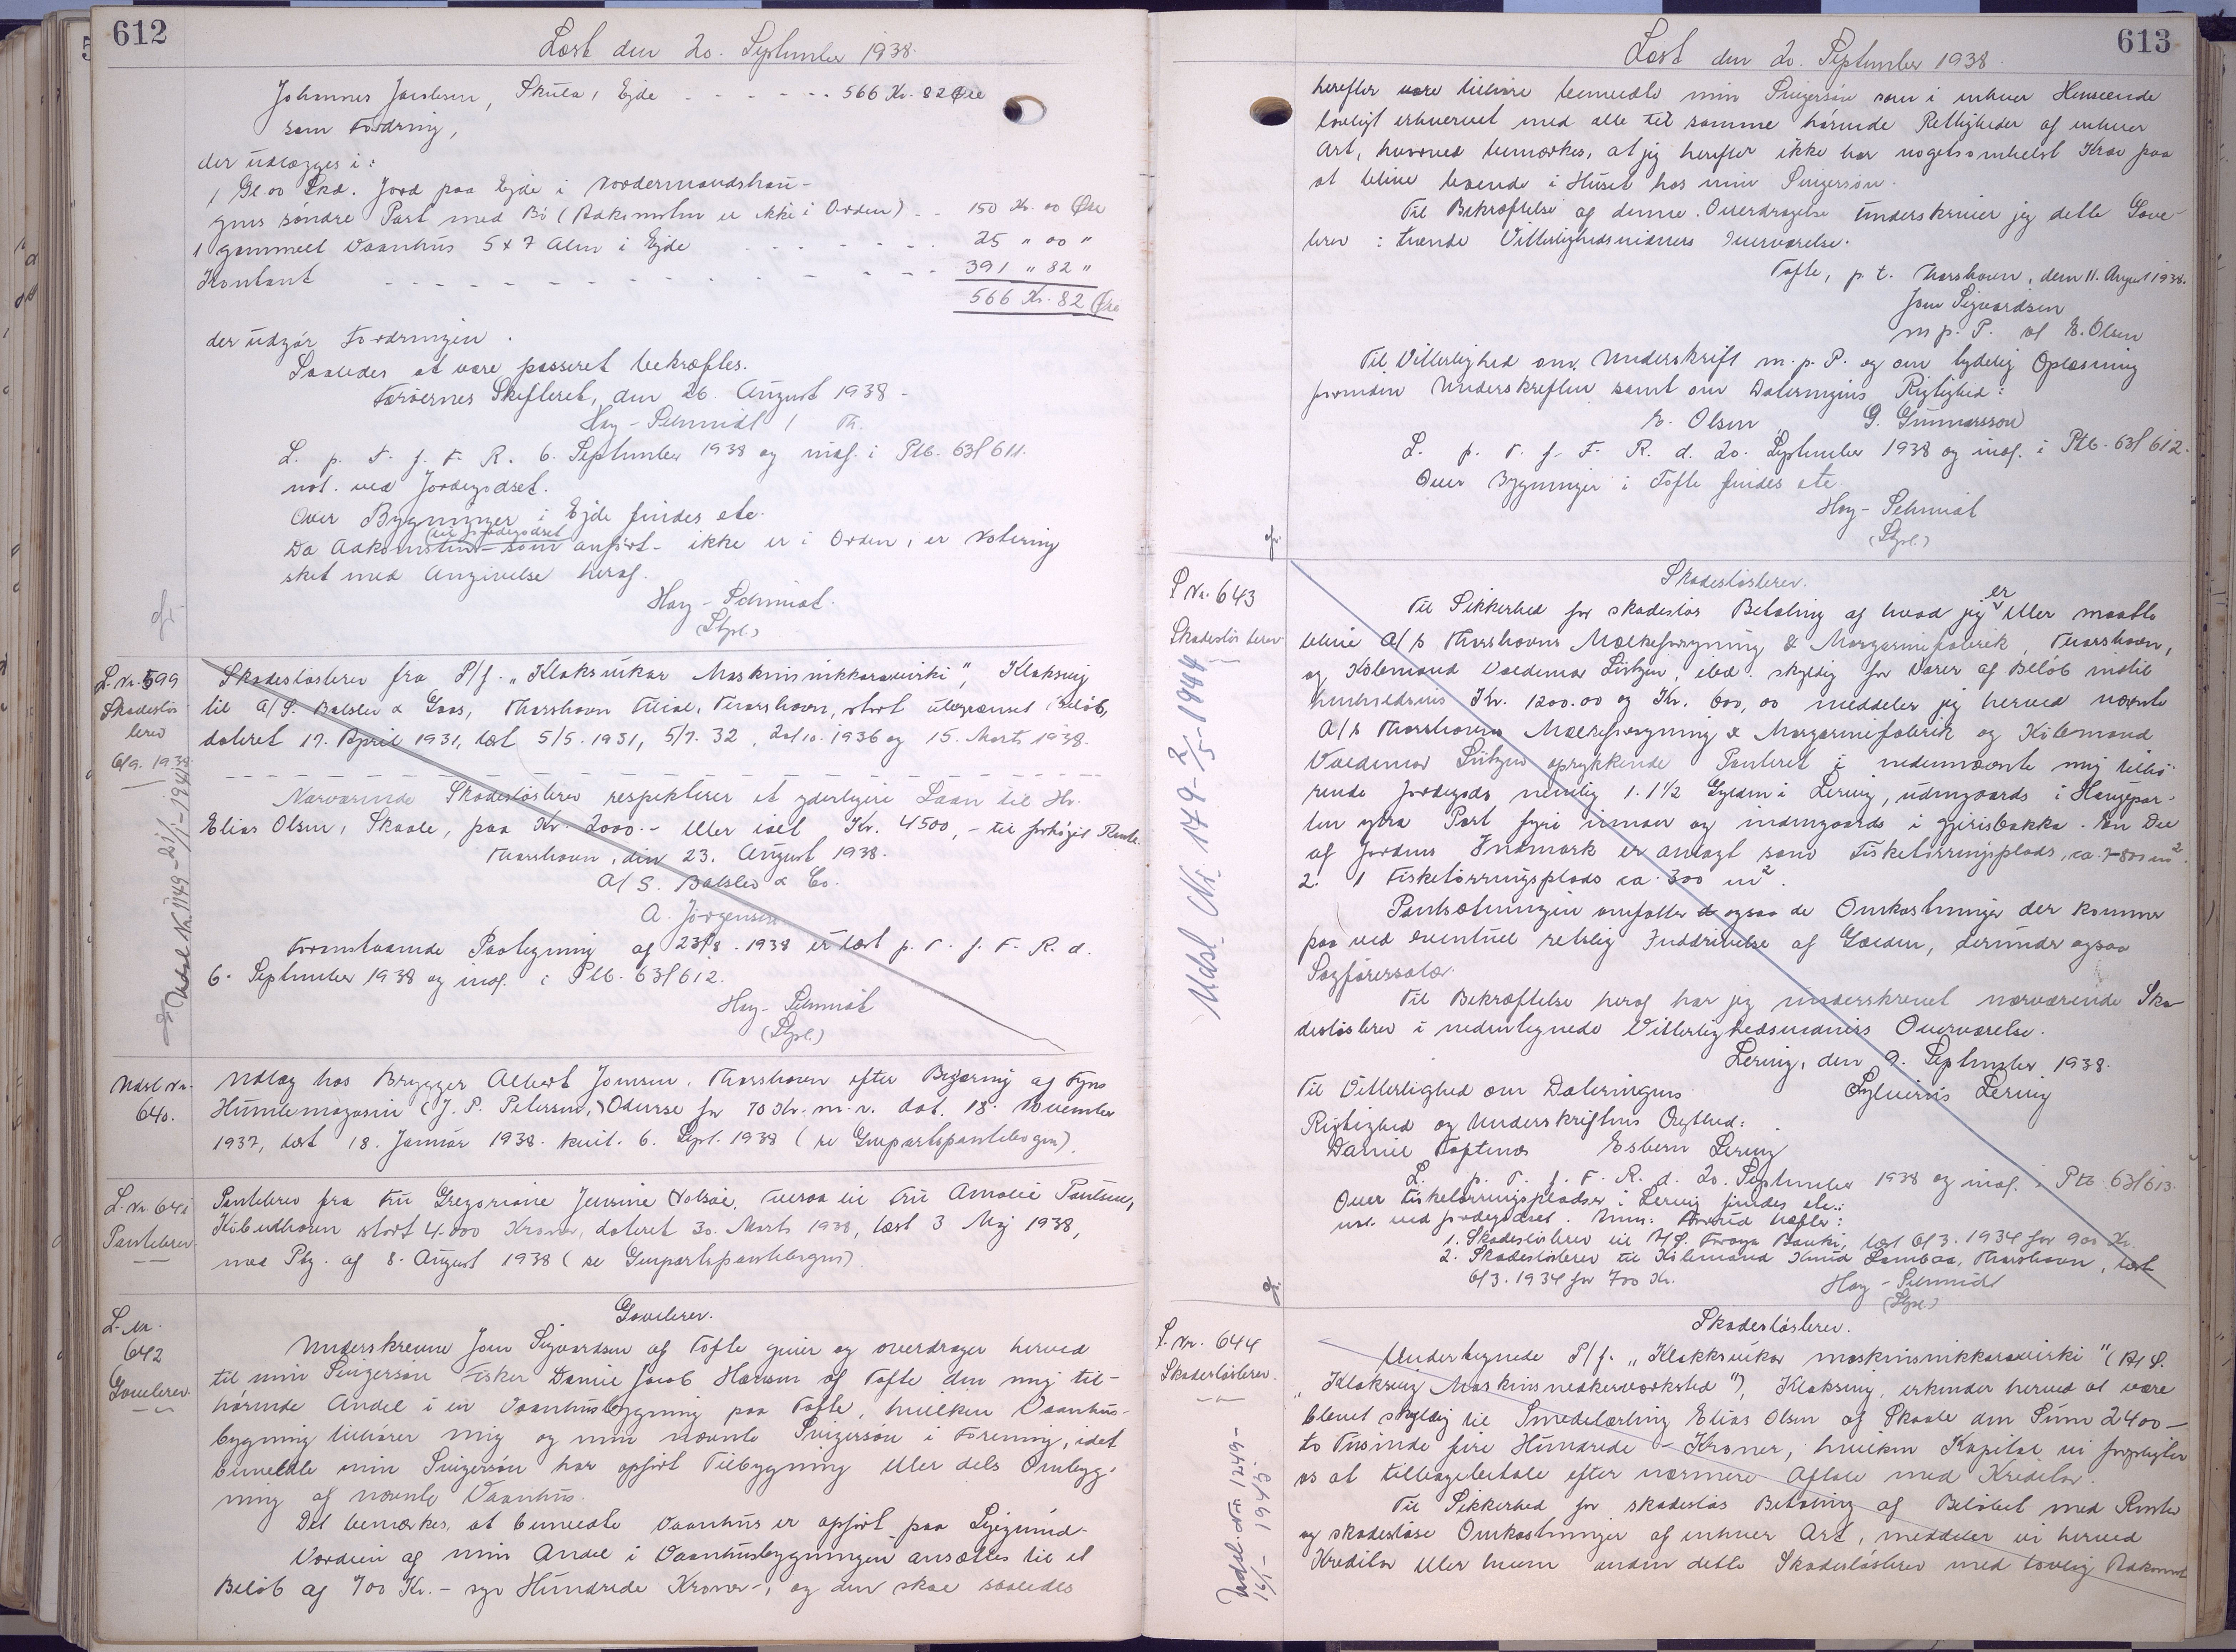 612
Læst den 20. September 1938.
Johannes Jacobsen, Skula, Ejde - - - - - - 566 Kr. 82 Øre
som Fordring,
der udlægges i:
1 Gl. 00 Skd. Jord paa Ejde i Nordermandshau-
gens söndre Part med Bö (Adkomsten er ikke i Orden) - - 150 Kr. 00 Øre
1 gammelt Vaanhus 5 x 7 Alen i Ejde - - - - - - 25 " 00 "
Kontant - - - - - - - - - - - 391 " 82 "
566 Kr. 82 Øre
der udgör Fordringen.
Saaledes at være passeret bekræftes.
Færøernes Skifteret, den 26. August 1938.
Hay-Schmidt / Th.
L. p. T. f. F. R. 6. September 1938 og indf. i Ptb. 63 f 611.
not. ved Jordegodset.
Over Bygninger i Ejde findes ete.
til Jordegodset
Da Adkomsten - som anført - ikke er i Orden, er Notering
sket med Angivelse heraf.
Hay-Schmidt.
(Stpl.)
cfr.
L. Nr. 599
Skadeslös
brev
6/9. 1938
Skadeslösbrev fra P/f. "Klaksvikar Maskinsnikkaravirki", Klaksvig
til A/S. Balslev & Goos, Thorshavn Filial, Thorshavn, stort ubegrænset Beløb,
dateret 17. April 1931, læst 5/5. 1931, 5/7. 32, 20/10. 1936 og 15. Marts 1938.
Nærværende Skadeslösbrev respekterer et yderligere Laan til Hr.
Elias Olsen, Skaale, paa Kr. 2000.- eller ialt Kr. 4500,- til forhøjet Rente.
Thorshavn, den 23. August 1938.
A/S. Balslev & Co.
A. Jörgensen
Foranstaaende Paategning af 23/8. 1938 er læst p. T. f. F. R. d.
6. September 1938 og indf. i Ptb. 63 f 612.
Hay-Schmidt
(Stpl.)
Udsl. Nr. 1149 - 1941
Udsl. Nr.
640.
Udlæg hos Brygger Albert Joensen, Thorshavn efter Begæring af Fyns
Humlemagasin (J. P. Petersen,) Odense for 70 Kr. m. v. dat. 18. November
1937, læst 18. Januar 1938. kvit. 6. Sept. 1938 (se Genpartspantebogen).
L. Nr. 641
Pantebrev
Pantebrev fra Fru Gregoriane Jensine Volsöe, Tveraa til Fru Amalie Poulsen,
København stort 4.000 Kroner, dateret 30. Marts 1938, læst 3 Maj 1938,
med Ptg. af 8. August 1938 (se Genpartspantebogen)
L. Nr.
642
Gavebrev
Gavebrev.
Underskrevne Joen Sigvardsen af Tofte giver og overdrager herved
til min Svigersön Fisker Daniel Jacob Hansen af Tofte den mig til-
hörende Andel i en Vaanhusbygning paa Tofte, hvilken Vaanhus-
bygning tilhører mig og min nævnte Svigersön i Forening, idet
bemeldte min Svigersön har opfört Tilbygning eller dels Ombyg-
ning af nævnte Vaanhus.
Det bemærkes, at bemeldte Vaanhus er opfört paa Lejegrund.
Værdien af min Andel i Vaanhusbygningen ansættes til et
Beløb af 700 Kr. - syv Hundrede Kroner -, og den skal saaledes
613
Læst den 20. September 1938.
herefter være tilhøre bemeldte min Svigersön som i enhver Henseende
lovligt erhvervet med alle til samme hørende Rettigheder af enhver
Art, hvorved bemærkes, at jeg herefter ikke har nogetsomhelst Krav paa
at blive boende i Huset hos min Svigersön.
Til Bekræftelse af denne Overdragelse underskriver jeg dette Gave-
brev i tvende Vitterlighedsvidners Overværelse.
Tofte, p. t. Thorshavn, den 11. August 1938.
Joen Sigvardsen
m. p. P. af E. Olsen
Til Vitterlighed om Underskrift m. p. P. og om tydelig Oplæsning
forinden Underskriften samt om Dateringens Rigtighed:
E. Olsen G. Gunnarsson
L. p. T. f. F. R. d. 20. September 1938 og indf. i Ptb. 63 f 612.
Over Bygninger i Tofte findes ete.
Hay-Schmidt
(Stpl.)
cfr.
L. Nr. 643
Skadeslösbrev
Udsl. Nr. 149 - 2/5 - 1944
Skadeslösbrev.
Til Sikkerhed for skadeslös Betaling af hvad jeg er eller maatte
blive A/S Thorshavns Mælkeforsyning & Margarinefabrik, Thorshavn,
og Købmand Valdemar Lützen, ibd. skyldig for Varer af Beløb indtil
henholdsvis Kr. 1200.00 og Kr. 600,00 meddeler jeg herved nævnte
A/S Thorshavns Mælkeforsyning & Margarinefabrik og Købmand
Valdemar Lützen oprykkende Panteret i nedennævnte mig tilhø-
rende Jordegods nemlig 1. 1 1/2 Gylden i Lervig, udengaards i Haugepar-
ten ytra Part fyri innan og indengaards i Gjirisbakka. En Del
af Jordens Indmark er anlagt som Fisketörringsplads, ca. 7-800 m2.
2. 1 Fisketörringsplads ca. 300 m2.
Pantsætningen omfatter ogsaa de Omkostninger der kommer
paa ved eventuel retslig Inddrivelse af Gælden, derunder ogsaa
Sagførersalær.
Til Bekræftelse heraf har jeg underskrevet nærværende Ska-
deslösbrev i nedentegnede Vitterlighedsvidners Overværelse.
Lervig, den 9. September 1938.
Til Vitterlighed om Dateringens Sylverius Lervig
Rigtighed og Underskriftens Ægthed:
Daniel Toftenes Esbern Lervig
L. p. T. f. F. R. d. 20. September 1938 og indf. i Ptb. 63 f 613.
Over Fisketörringspladser i Lervig findes ete.:
not. ved Jordegodset. Anm: Forud hæfter:
1. Skadeslösbrev til P/f. Föroya Banki, læst 6/3. 1934 for 900 Kr.
2. Skadeslösbrev til Købmand Knud Lambaa, Thorshavn, læst
6/3. 1934 for 700 Kr.
Hay-Schmidt
(Stpl.)
cfr.
L. Nr. 644
Skadeslösbrev.
Udsl. Nr. 1249 -
16/1 - 1943
Skadeslösbrev.
Undertegnede P/f. "Klakksvikar maskinsnikkaravirki" (A/S.
"Klaksvig Maskinsnedkerværksted"), Klaksvig, erkender herved at være
blevet skyldig til Smedelærling Elias Olsen af Skaale den Sum 2400 -
to Tusinde fire Hundrede - Kroner, hvilken Kapital vi forpligter
os at tilbagebetale efter nærmere Aftale med Kreditor.
Til Sikkerhed for skadeslös Betaling af Beløbet med Renter
og skadeslöse Omkostninger af enhver Art, meddeler vi herved
Kreditor eller hvem anden dette Skadeslösbrev med lovlig Adkomst